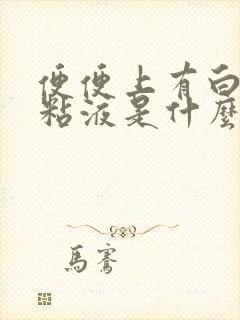 便便上有白
粘液是什麼
馬騫